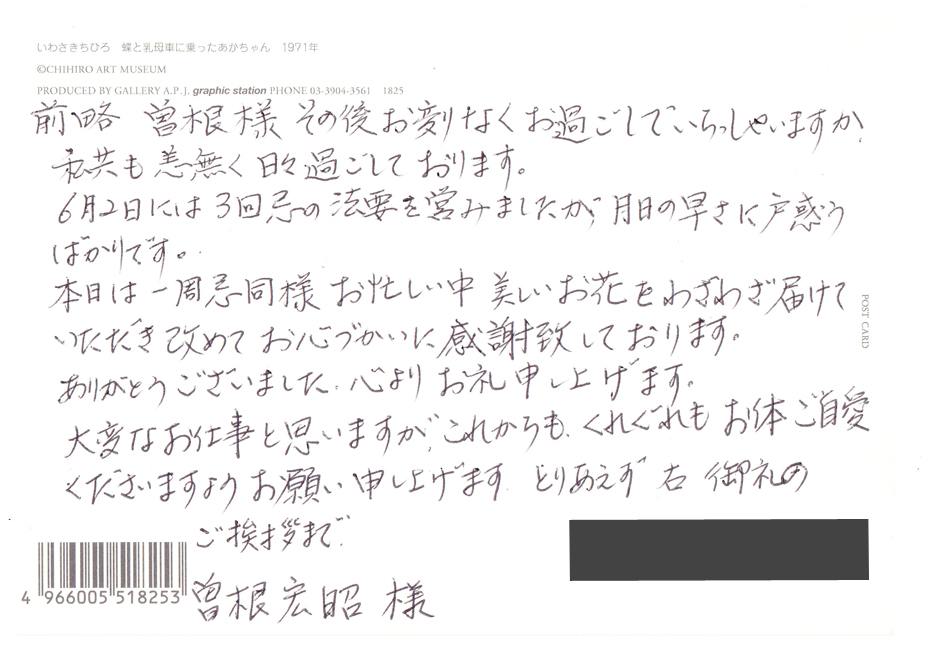 いわさきちひろ　蝶と乳母車に乗ったあかちゃん　1971年
©CHIHIRO ART MUSEUM
PRODUCED BY GALLERY A.P.J. graphic station PHONE 03-3904-3561 1825
前略 曽根様 その後お変りなくお過ごしでいらっしゃいますか。
私共も恙無く日々過ごしております。
6月2日には3回忌の法要を営みましたが、月日の早さに戸惑う
ばかりです。
本日は一周忌同様お忙しい中美しいお花をわざわざ届けて
いただき改めてお心づかいに感謝致しております。
ありがとうございました。心よりお礼申し上げます。
大変なお仕事と思いますが、これからも、くれぐれもお体ご自愛
くださいますようお願い申し上げます。とりあえず右御礼の
ご挨拶まで。
曽根宏昭 様
POST CARD
4 966005 518253